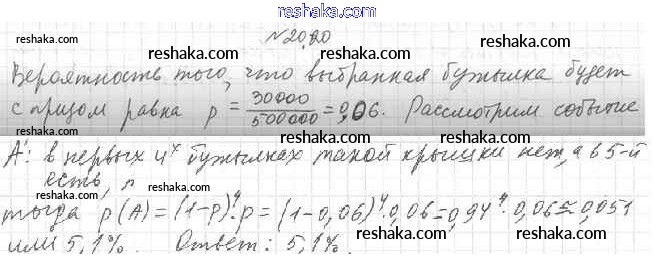 reshak.ru
№20.20
Вероятность того, что выбранная бутылка будет
с призом равна p = 30000/500000 = 0,06. Рассмотрим событие
A: в первых 4х бутылках такой крышки нет, а в 5-й
есть,
тогда p(A) = (1-p)⁴·p = (1-0,06)⁴·0,06 = 0,94⁴·0,06 ≈ 0,051
или 5,1%. Ответ: 5,1%.
reshaka.com
reshaka.com
reshaka.com
reshaka.com
reshaka.com
reshaka.com
reshaka.com
reshaka.com
reshaka.com
reshaka.com
reshaka.com